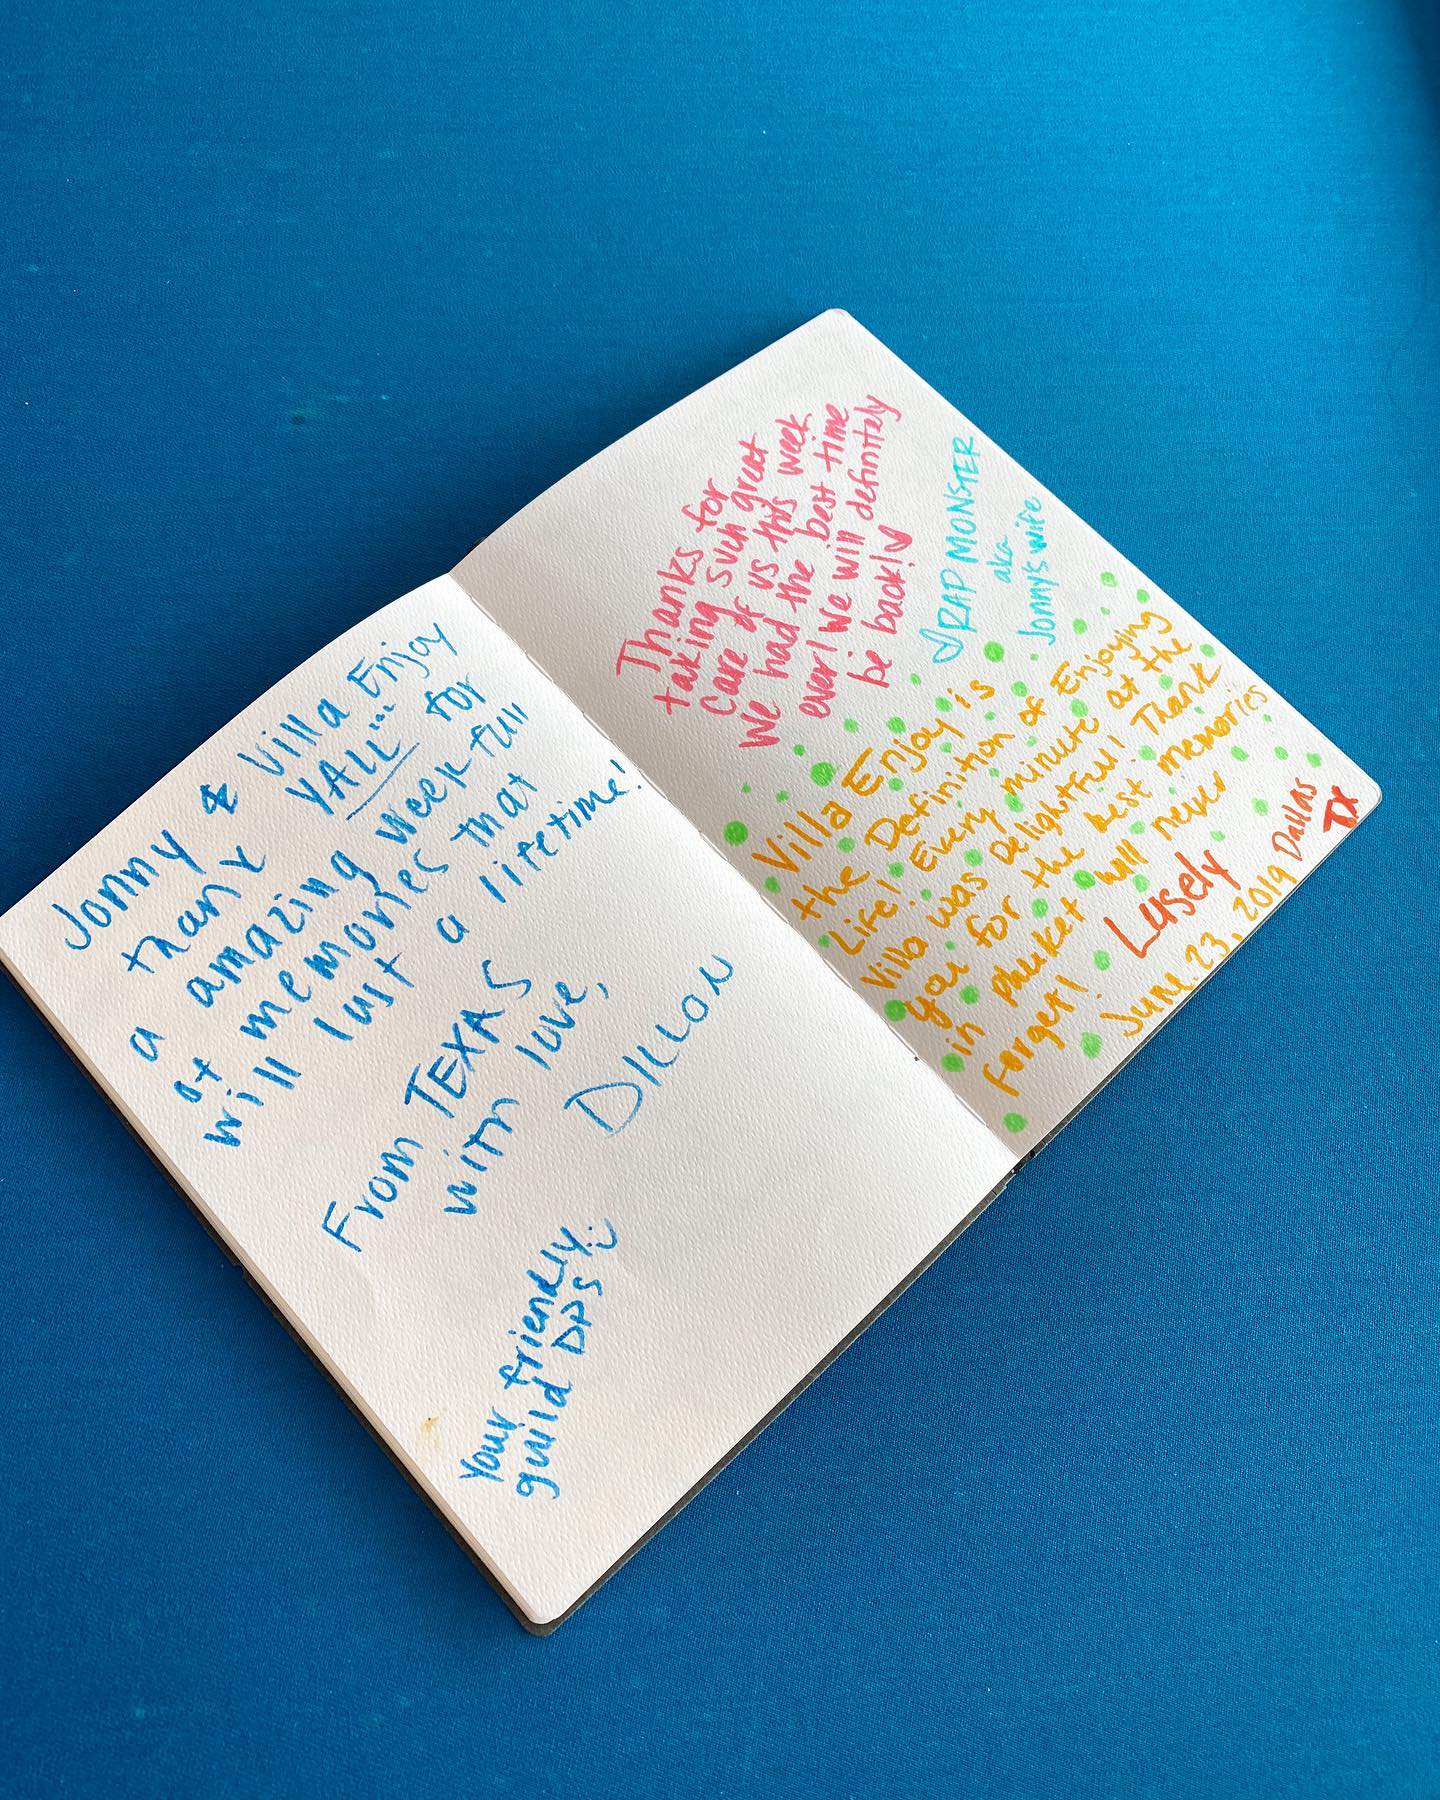 Jonny & Villa Enjoy
thank YALL... for
a amazing week full
of memories that
will last a lifetime!
From TEXAS
with love,
DILLON
Your friendly
guild DPS :)
Thanks for
taking such great
care of us this week
We had the best time
ever! We will definitely
be back! ♡
♡ RAP MONSTER
aka
Jonny's wife
Villa Enjoy is
the Definition of Enjoying
Life! Every minute at the
Villa was Delightful! Thank
you for the best memories
in phuket will never
forget!
Lusely
June 23, 2019 Dallas
TX